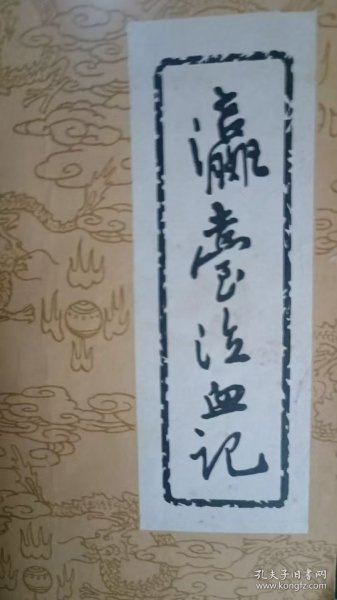 瀛台泣血记
孔夫子旧书网
www.kongfz.com